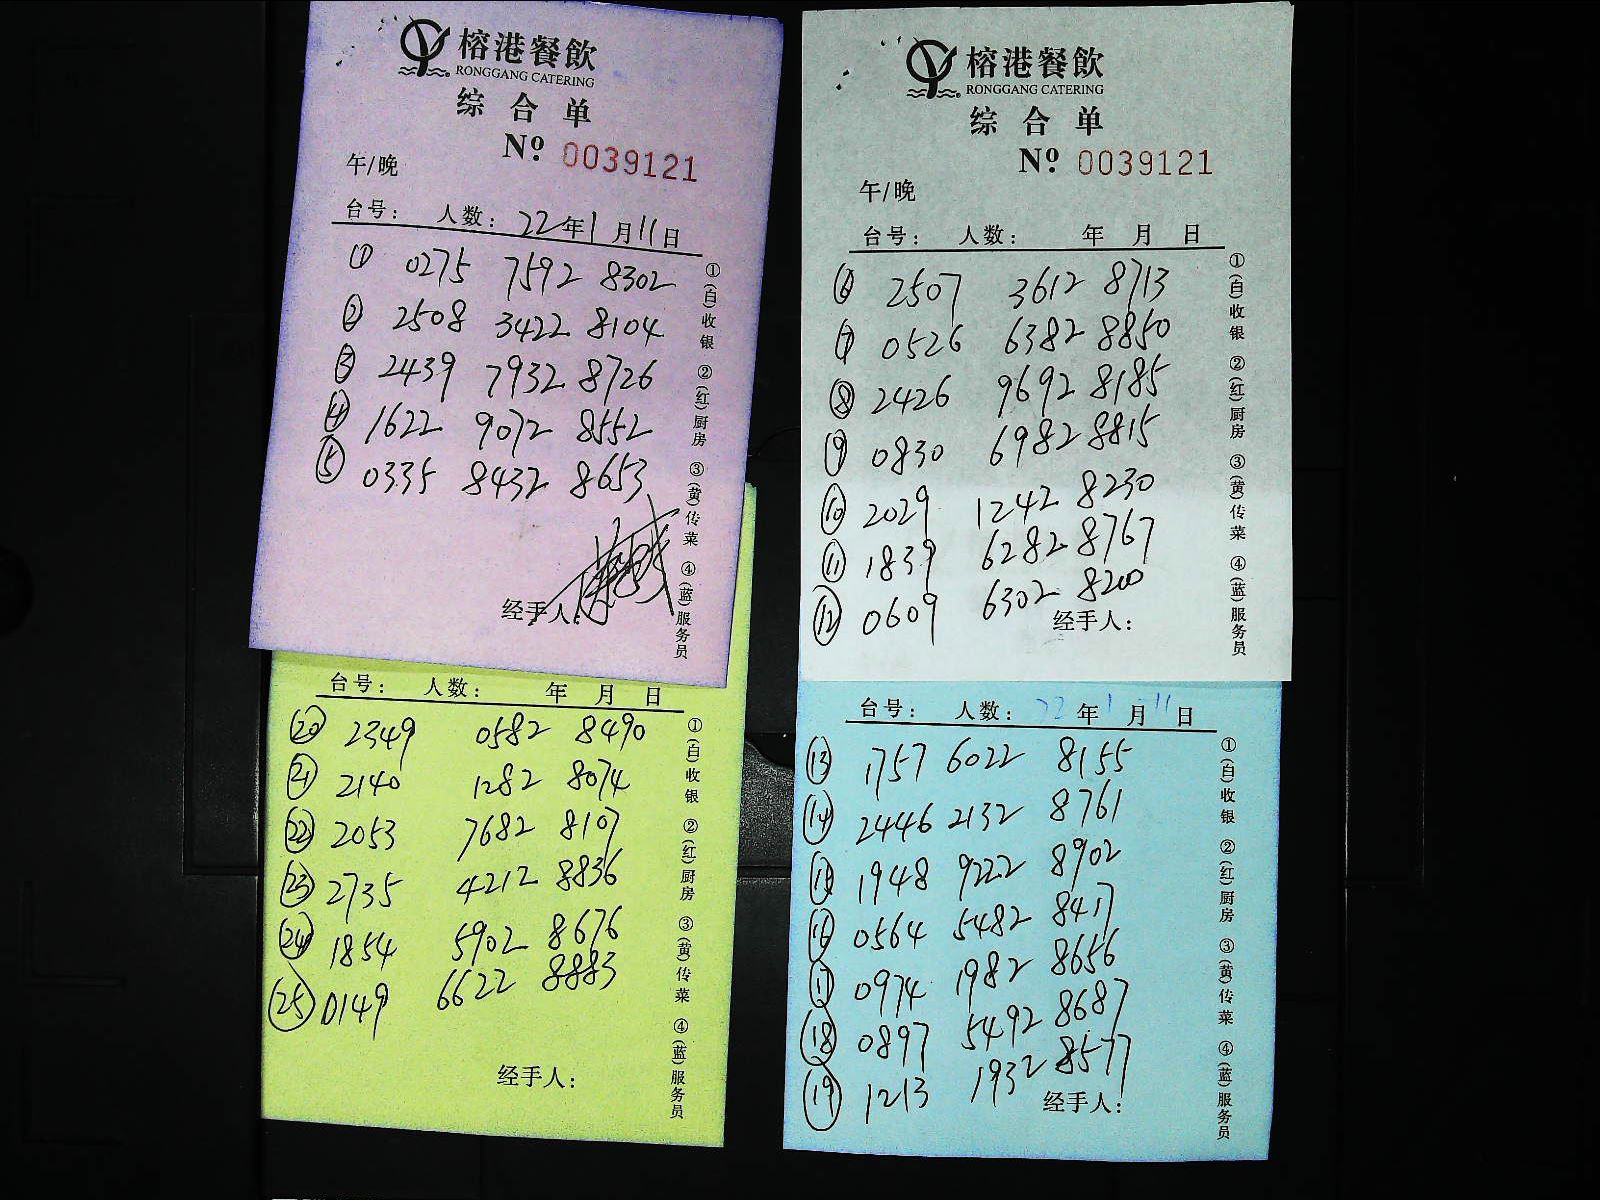 榕港餐飲
RONGGANG CATERING
综合单
Nº 0039121
午/晚
台号： 人数： 22年1月11日
① 0275 7592 8302
② 2508 3422 8104
③ 2439 7932 8726
④ 1622 9072 8552
⑤ 0335 8432 8653
经手人：
①(白)收银 ②(红)厨房 ③(黄)传菜 ④(蓝)服务员
榕港餐飲
RONGGANG CATERING
综合单
Nº 0039121
午/晚
台号： 人数： 年 月 日
⑥ 2507 3612 8713
⑦ 0526 6382 8850
⑧ 2426 9692 8185
⑨ 0830 6982 8815
⑩ 2029 1242 8230
⑪ 1839 6282 8767
⑫ 0609 6302 8200
经手人：
①(白)收银 ②(红)厨房 ③(黄)传菜 ④(蓝)服务员
台号： 人数： 22年1月11日
⑬ 1757 6022 8155
⑭ 2446 2132 8761
⑮ 1948 9222 8902
⑯ 0564 5482 8417
⑰ 0974 1982 8656
⑱ 0897 5492 8687
⑲ 1213 1932 8577
经手人：
①(白)收银 ②(红)厨房 ③(黄)传菜 ④(蓝)服务员
台号： 人数： 年 月 日
⑳ 2349 0582 8490
㉑ 2140 1282 8074
㉒ 2053 7682 8107
㉓ 2735 4212 8836
㉔ 1854 5902 8676
㉕ 0149 6622 8883
经手人：
①(白)收银 ②(红)厨房 ③(黄)传菜 ④(蓝)服务员